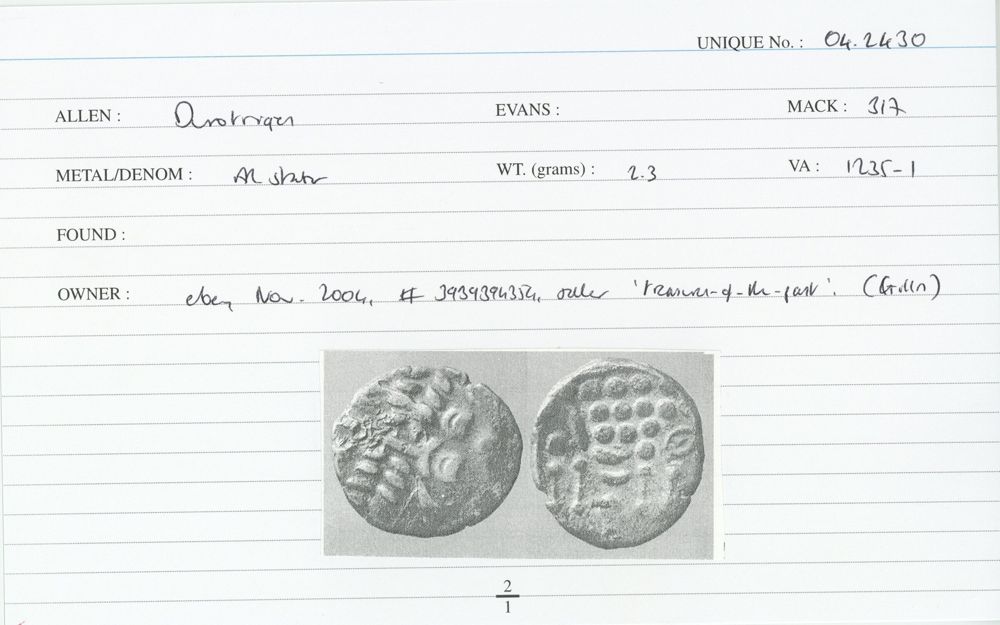 UNIQUE No. : 04.2430
ALLEN : Durotriges EVANS : MACK : 317
METAL/DENOM : AR stater WT. (grams) : 2.3 VA : 1235-1
FOUND :
OWNER : ebay Nov. 2004, # 3939394354, seller 'treasure-of-the-past'.
2
1